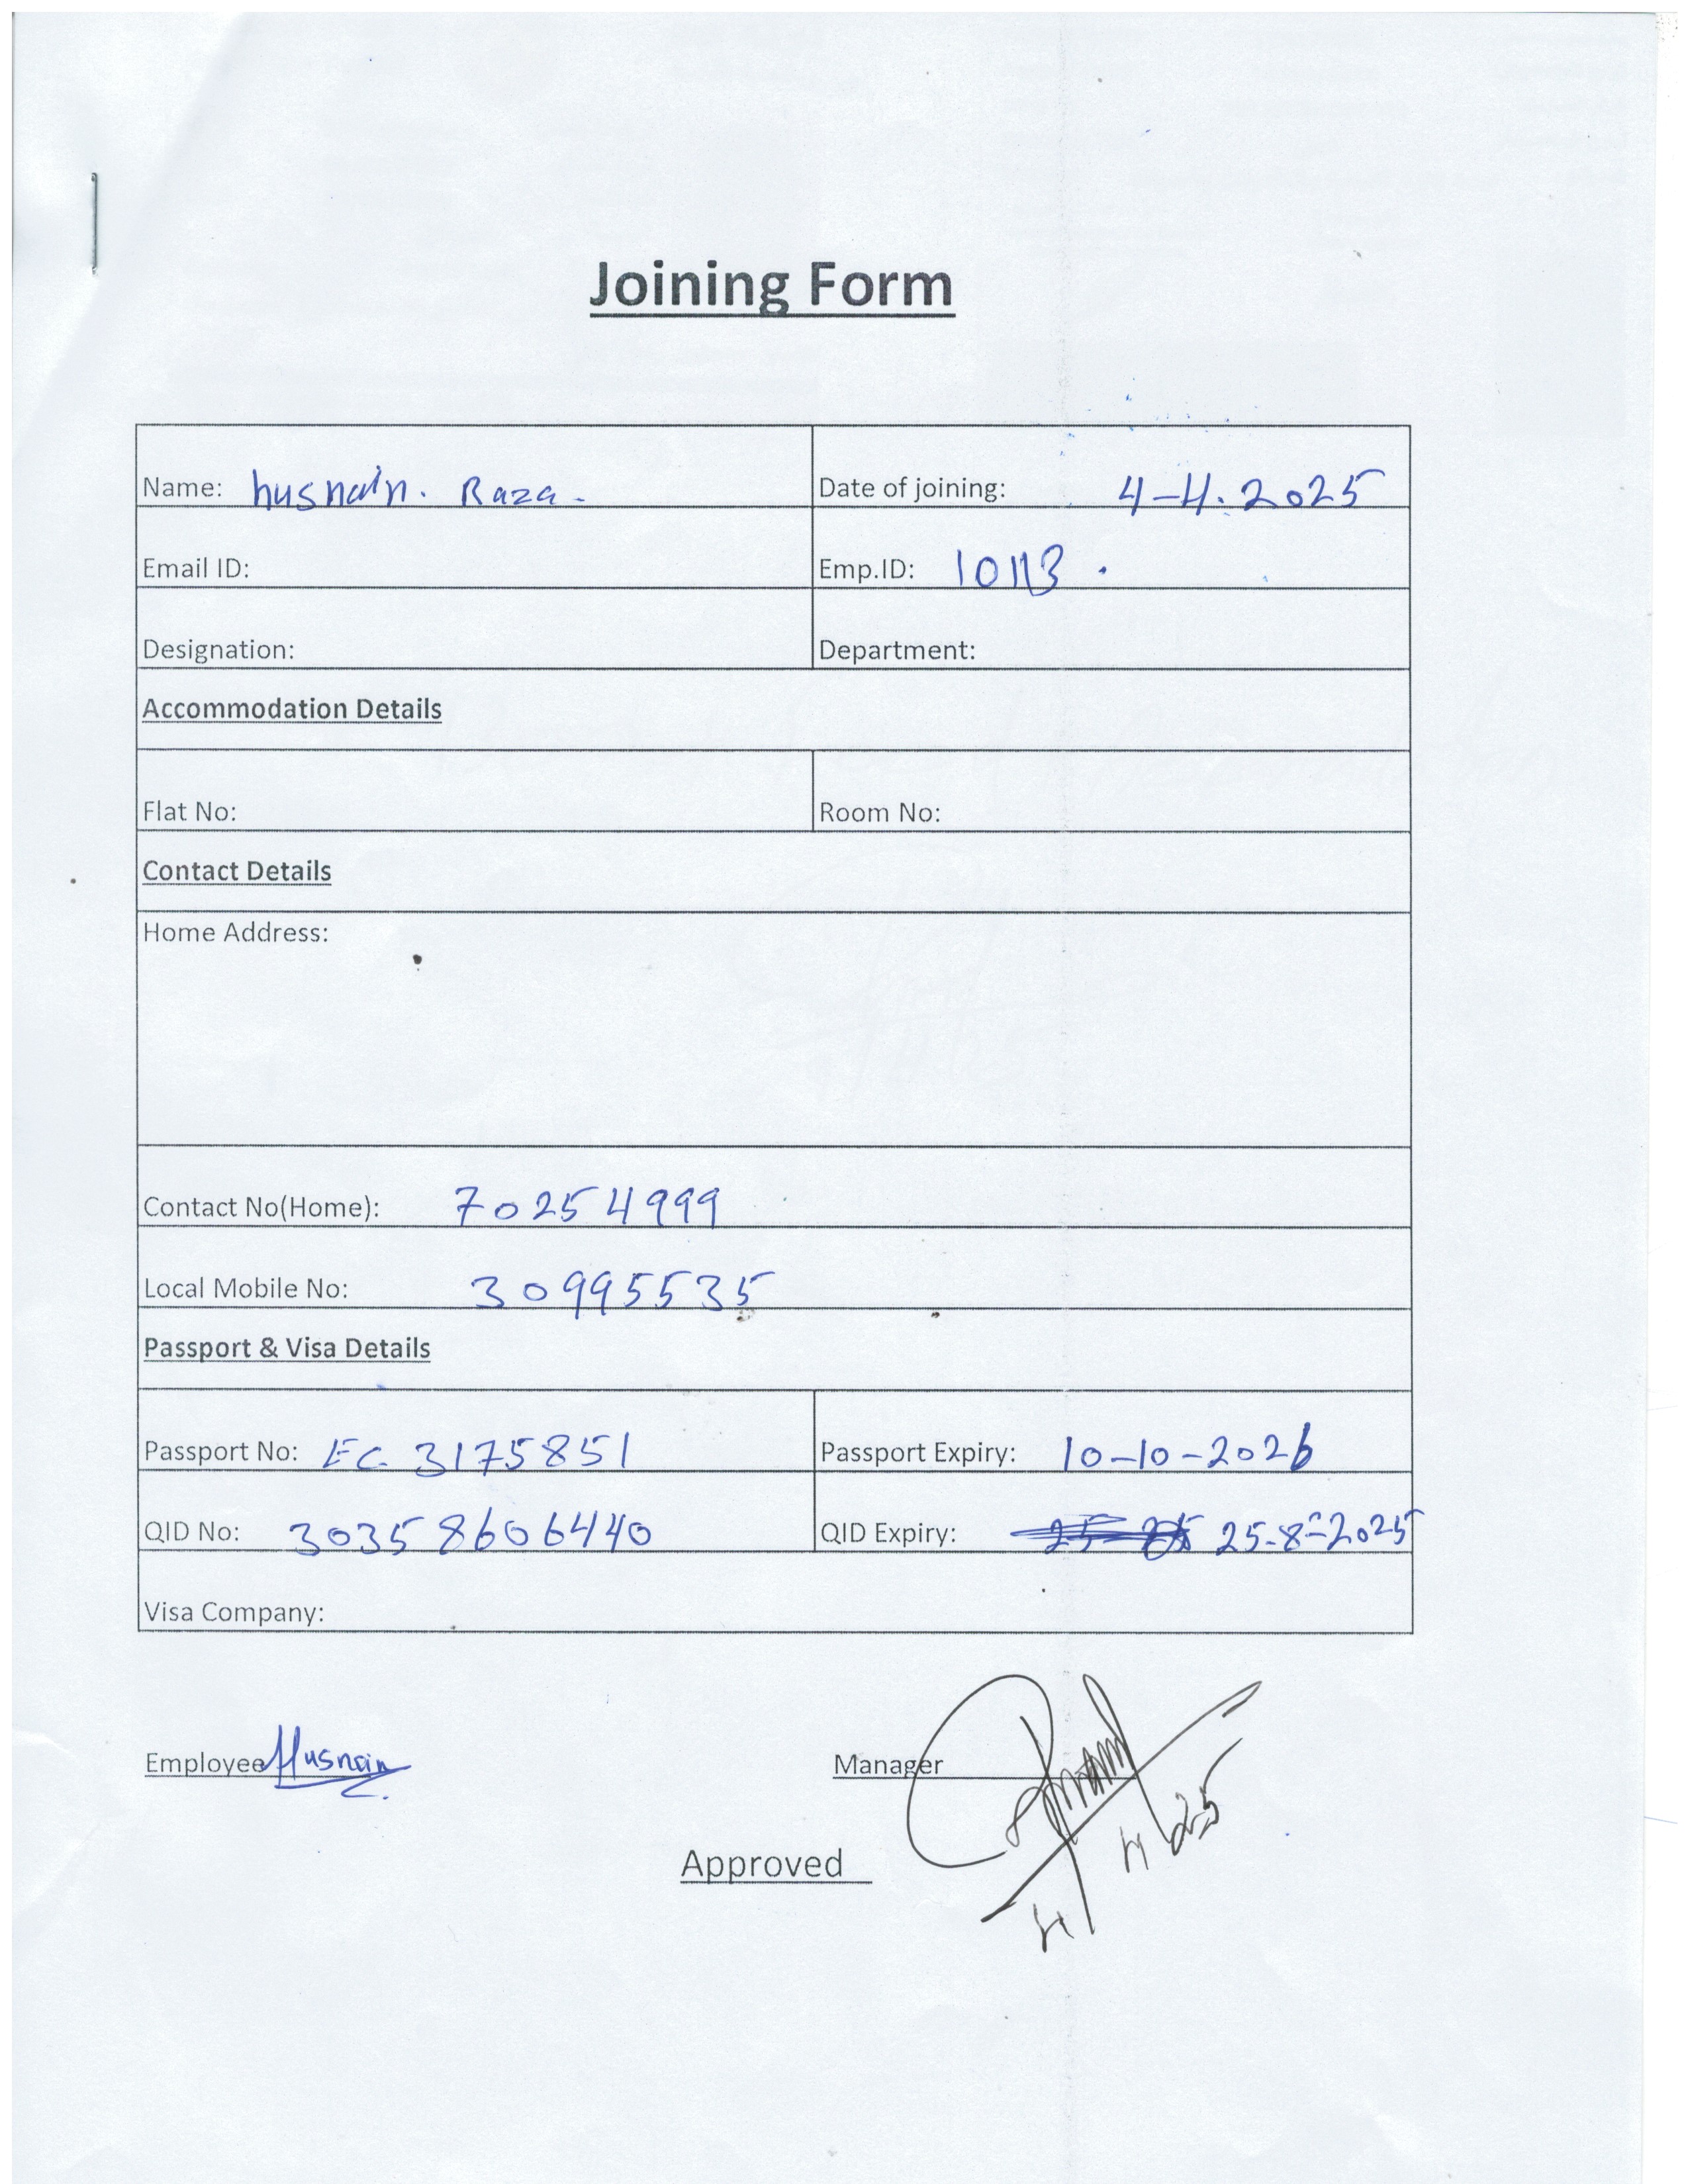 Joining Form
Name: husnain. Raza. Date of joining: 4-4.2025
Email ID: Emp.ID: 10113.
Designation: Department:
Accommodation Details
Flat No: Room No:
Contact Details
Home Address:
Contact No(Home): 70254999
Local Mobile No: 30995535
Passport & Visa Details
Passport No: EC 3175851 Passport Expiry: 10-10-2026
QID No: 30358606440 QID Expiry: 25-8-2025
Visa Company:
Employee Husnain Manager
Approved